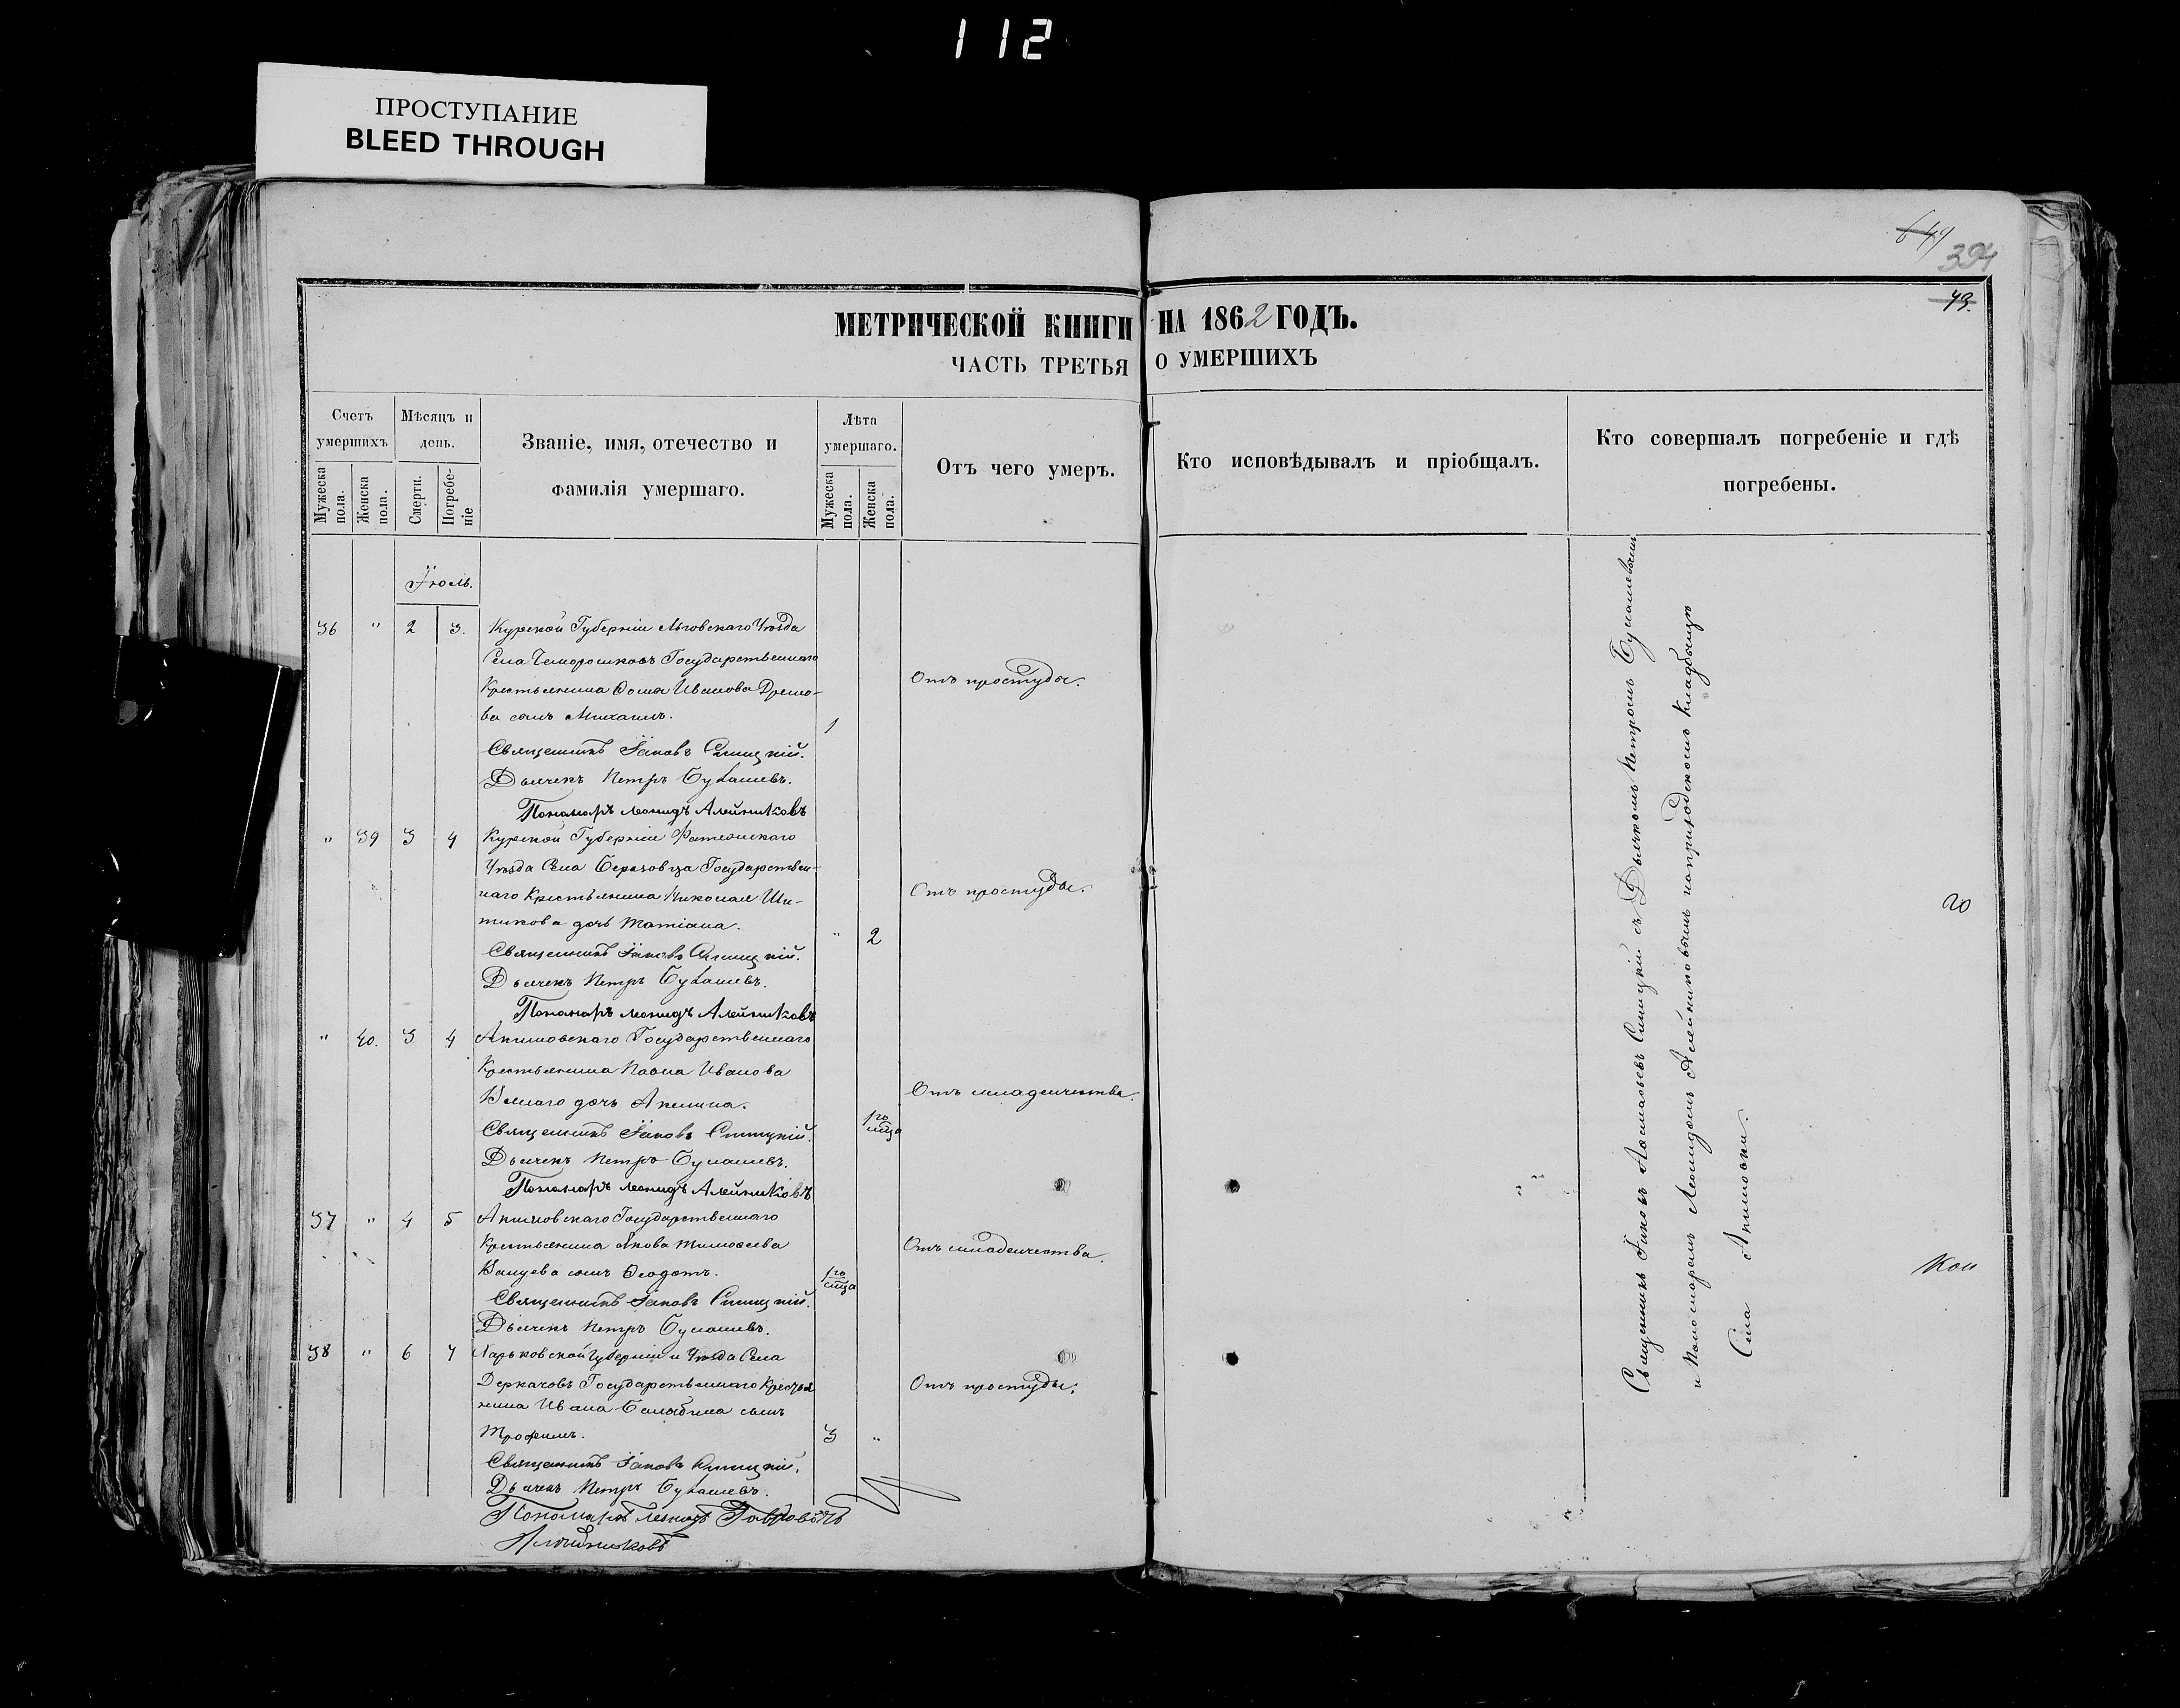 112
ПРОСТУПАНИЕ
BLEED THROUGH
394
43.
МЕТРИЧЕСКОЙ КНИГИ НА 1862 ГОДЪ.
ЧАСТЬ ТРЕТЬЯ О УМЕРШИХЪ
Счетъ умершихъ
Мужеска пола.
Женска пола.
Мѣсяцъ и день.
Смерти.
Погребеніе
Званіе, имя, отечество и фамилія умершаго.
Лѣта умершаго.
Мужеска пола.
Женска пола.
Отъ чего умеръ.
Кто исповѣдывалъ и пріобщалъ.
Кто совершалъ погребеніе и гдѣ погребены.
Іюль.
36 " 2 3. Курской Губерніи Льговскаго Уѣзда
Села Государственнаго
Крестьянина Ѳомы Иванова Дремо-
ва сынъ Михаилъ. 1
Отъ простуды.
Священникъ Іаковъ Синицкій.
Дьячекъ Петръ Букашевъ.
Пономарь Леонидъ Алейниковъ
" 39 3 4 Курской Губерніи Фатежскаго
Уѣзда Села Березовца Государствен-
наго Крестьянина Николая Ши-
тикова дочь Татіана. " 2
Отъ простуды.
Священникъ Іаковъ Синицкій.
Дьячекъ Петръ Букашевъ.
Пономарь Леонидъ Алейниковъ
" 40. 3 4 Акимовскаго Государственнаго
Крестьянина Павла Иванова
дочь Акилина. 1го мѣца
Отъ младенчества.
Священникъ Іаковъ Синицкій.
Дьячекъ Петръ Букашевъ.
Пономарь Леонидъ Алейниковъ
37 " 4 5 Акимовскаго Государственнаго
Крестьянина Якова Тимоѳеева
сынъ Ѳеодотъ. 1го мѣца
Отъ младенчества.
Священникъ Іаковъ Синицкій.
Дьячекъ Петръ Букашевъ.
38 " 6 7 Харьковской Губерніи и Уѣзда Села
Деркачовъ Государственнаго Крестья
нина Ивана сынъ
Трофимъ. 3 "
Отъ простуды.
Священникъ Іаковъ Синицкій.
Дьячекъ Петръ Букашевъ.
Пономарь Леонидъ
Алейниковъ
Священникъ Іаковъ Синицкій съ Дьячкомъ Петромъ Букашевымъ
и Пономаремъ Леонидомъ Алейниковымъ на приходскомъ кладбищѣ
Села Акимовки.
го
Кои